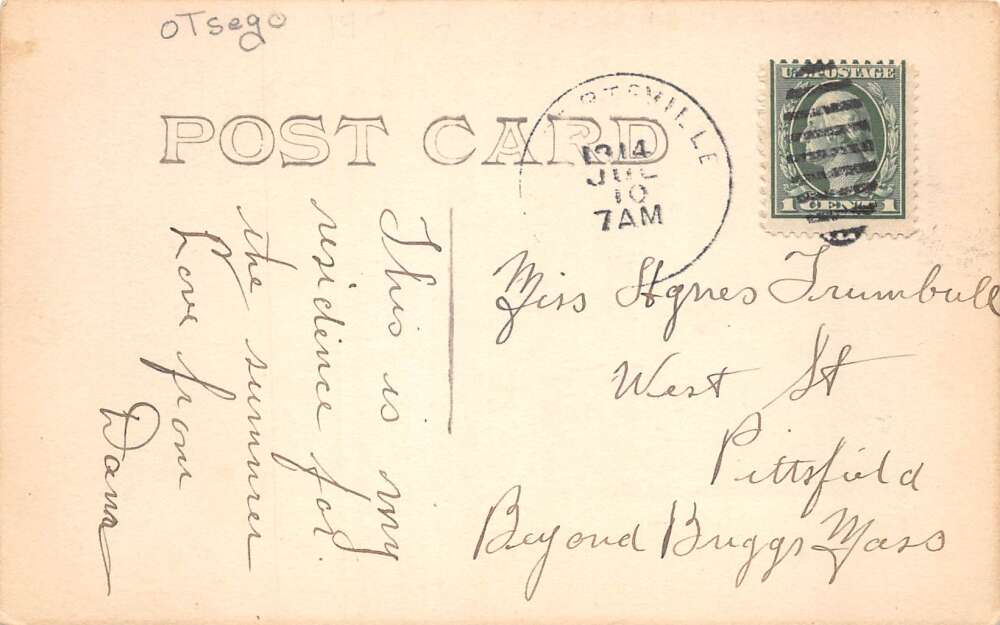 oTsego
POST CARD
1914
JUL
10
7AM
U.S. POSTAGE
1 CENT 1
This is my
residence for
the summer
Love from
Dana
Miss Agnes Trumbull
West St
Pittsfield
Beyond Briggs Mass